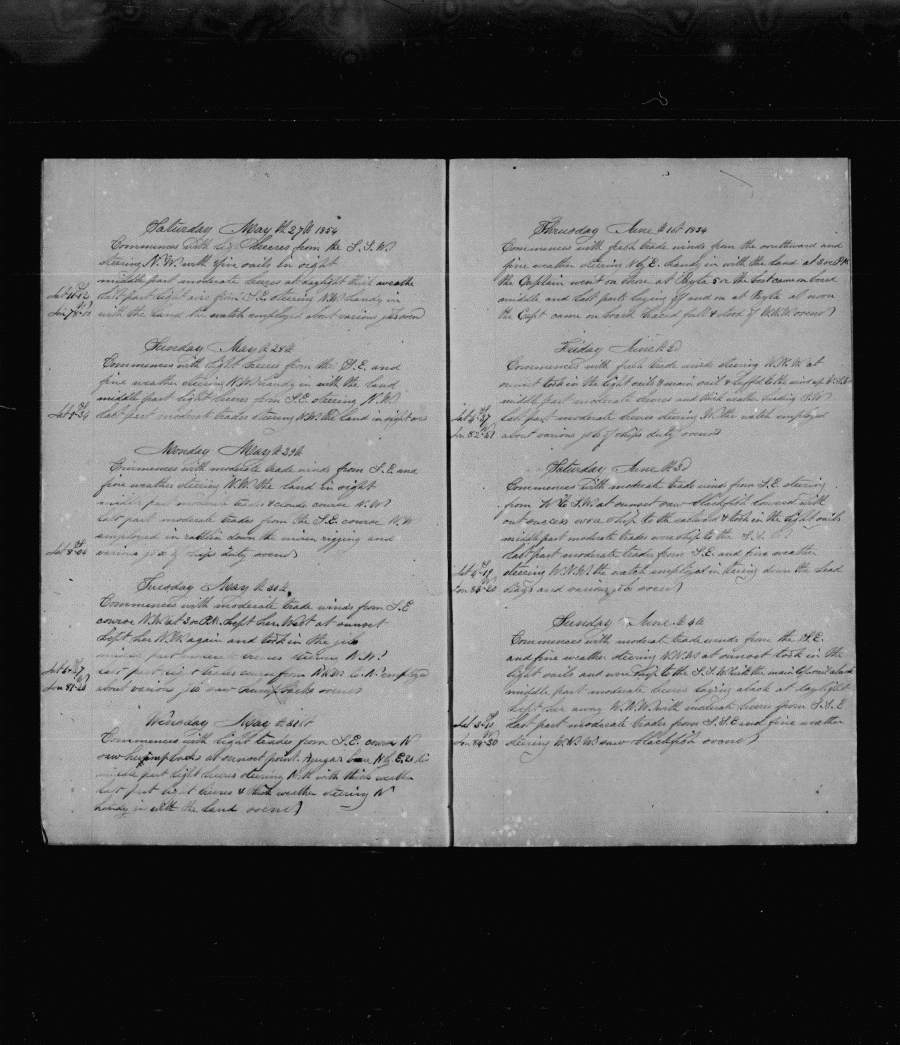 Saturday May th 27th 1854
Commences with light breezes from the S.S.W
steering N.W. with five sails in sight
middle part moderate breezes at daylight thick weather
Last part light airs from S.E. steering N.W. handy in
with the land the watch employed about various jobs
Sunday May th 28th
Commences with light breezes from the S.E. and
fine weather steering N.W. handy in with the land
middle part light breezes from S.E. steering N.W
last part moderate trades steering N.W. the land in sight
Monday May th 29th
Commences with moderate trade winds from S.E and
fine weather steering N.W. the land in sight
middle part moderate trades & clouds course N.W
Last part moderate trades from the S.E. course N.W
employed in ratlin down the mizen rigging and
various jobs of ships duty
Tuesday May th 30th
Commences with moderate trade winds from S.E
course N.W. at 3 o P.M. kept her West at sunset
kept her N.W. again and took in the jib
middle part moderate breezes steering N.W.
last part light trades course from N.W. to N. employed
about various jobs saw humpbacks
Wensday May th 31st
Commences with light trades from S.E. course N
saw humpbacks at sunset point bore N by E
middle part light breezes steering N. with thick weather
last part light breezes & thick weather steering N
handy in with the land
Thrusday June th 1st 1854
Commences with fresh trade winds from the southward and
fine weather steering N by E. handy in with the land at 3 o P.M.
the Captain went on shore at Payta 5 o the boat came on board
middle and last parts laying off and on at Payta at noon
the Capt came on board braced full & stood of W.N.W.
Friday June th 2d
Commences with fresh trade winds steering W.N.W. at
sunset took in the light sails & main sail & luffed to the wind
middle part moderate breezes and thick weather heading S.W
Last part moderate breezes steering W. the watch employed
about various jobs of ships duty
Saturday June th 3d
Commences with moderate trade winds from S.E. steering
from W to S.W. at sunset saw blackfish lowered with
out success wore ship to the eastward & took in the light sails
middle part moderate trades wore ship to the
Last part moderate trades from S.E. and fine weather
steering W.N.W. the watch employed in taring down the head
stays and various jobs
Sunday June th 4th
Commences with moderate trade winds from the S.E.
and fine weather steering W.N.W. at sunset took in the
light sails and wore ship to the S.S.W. with the main topsail aback
middle part moderate breezes laying aback at daylight
kept her away W.N.W. with moderate breezes from S.S.E
Last part moderate trades from S.S.E and fine weather
steering W.N.W. saw blackfish